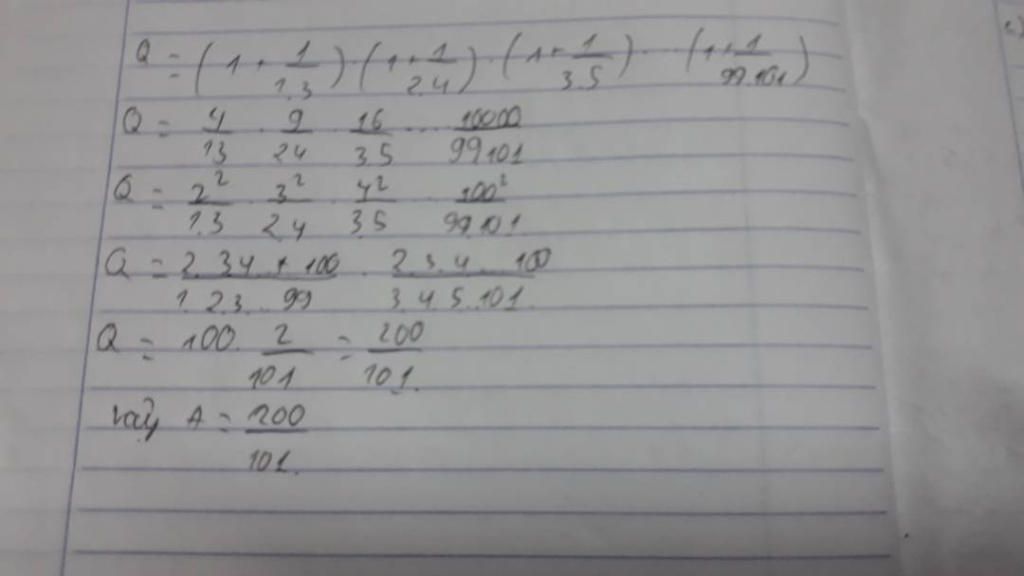 Q = (1 + 1/1.3) . (1 + 1/2.4) . (1 + 1/3.5) ... (1 + 1/99.101)
Q = 4/1.3 . 9/2.4 . 16/3.5 ... 10000/99.101
Q = 2²/1.3 . 3²/2.4 . 4²/3.5 ... 100²/99.101
Q = 2.3.4...100/1.2.3...99 . 2.3.4...100/3.4.5...101
Q = 100 . 2/101 = 200/101.
Vậy A = 200/101.